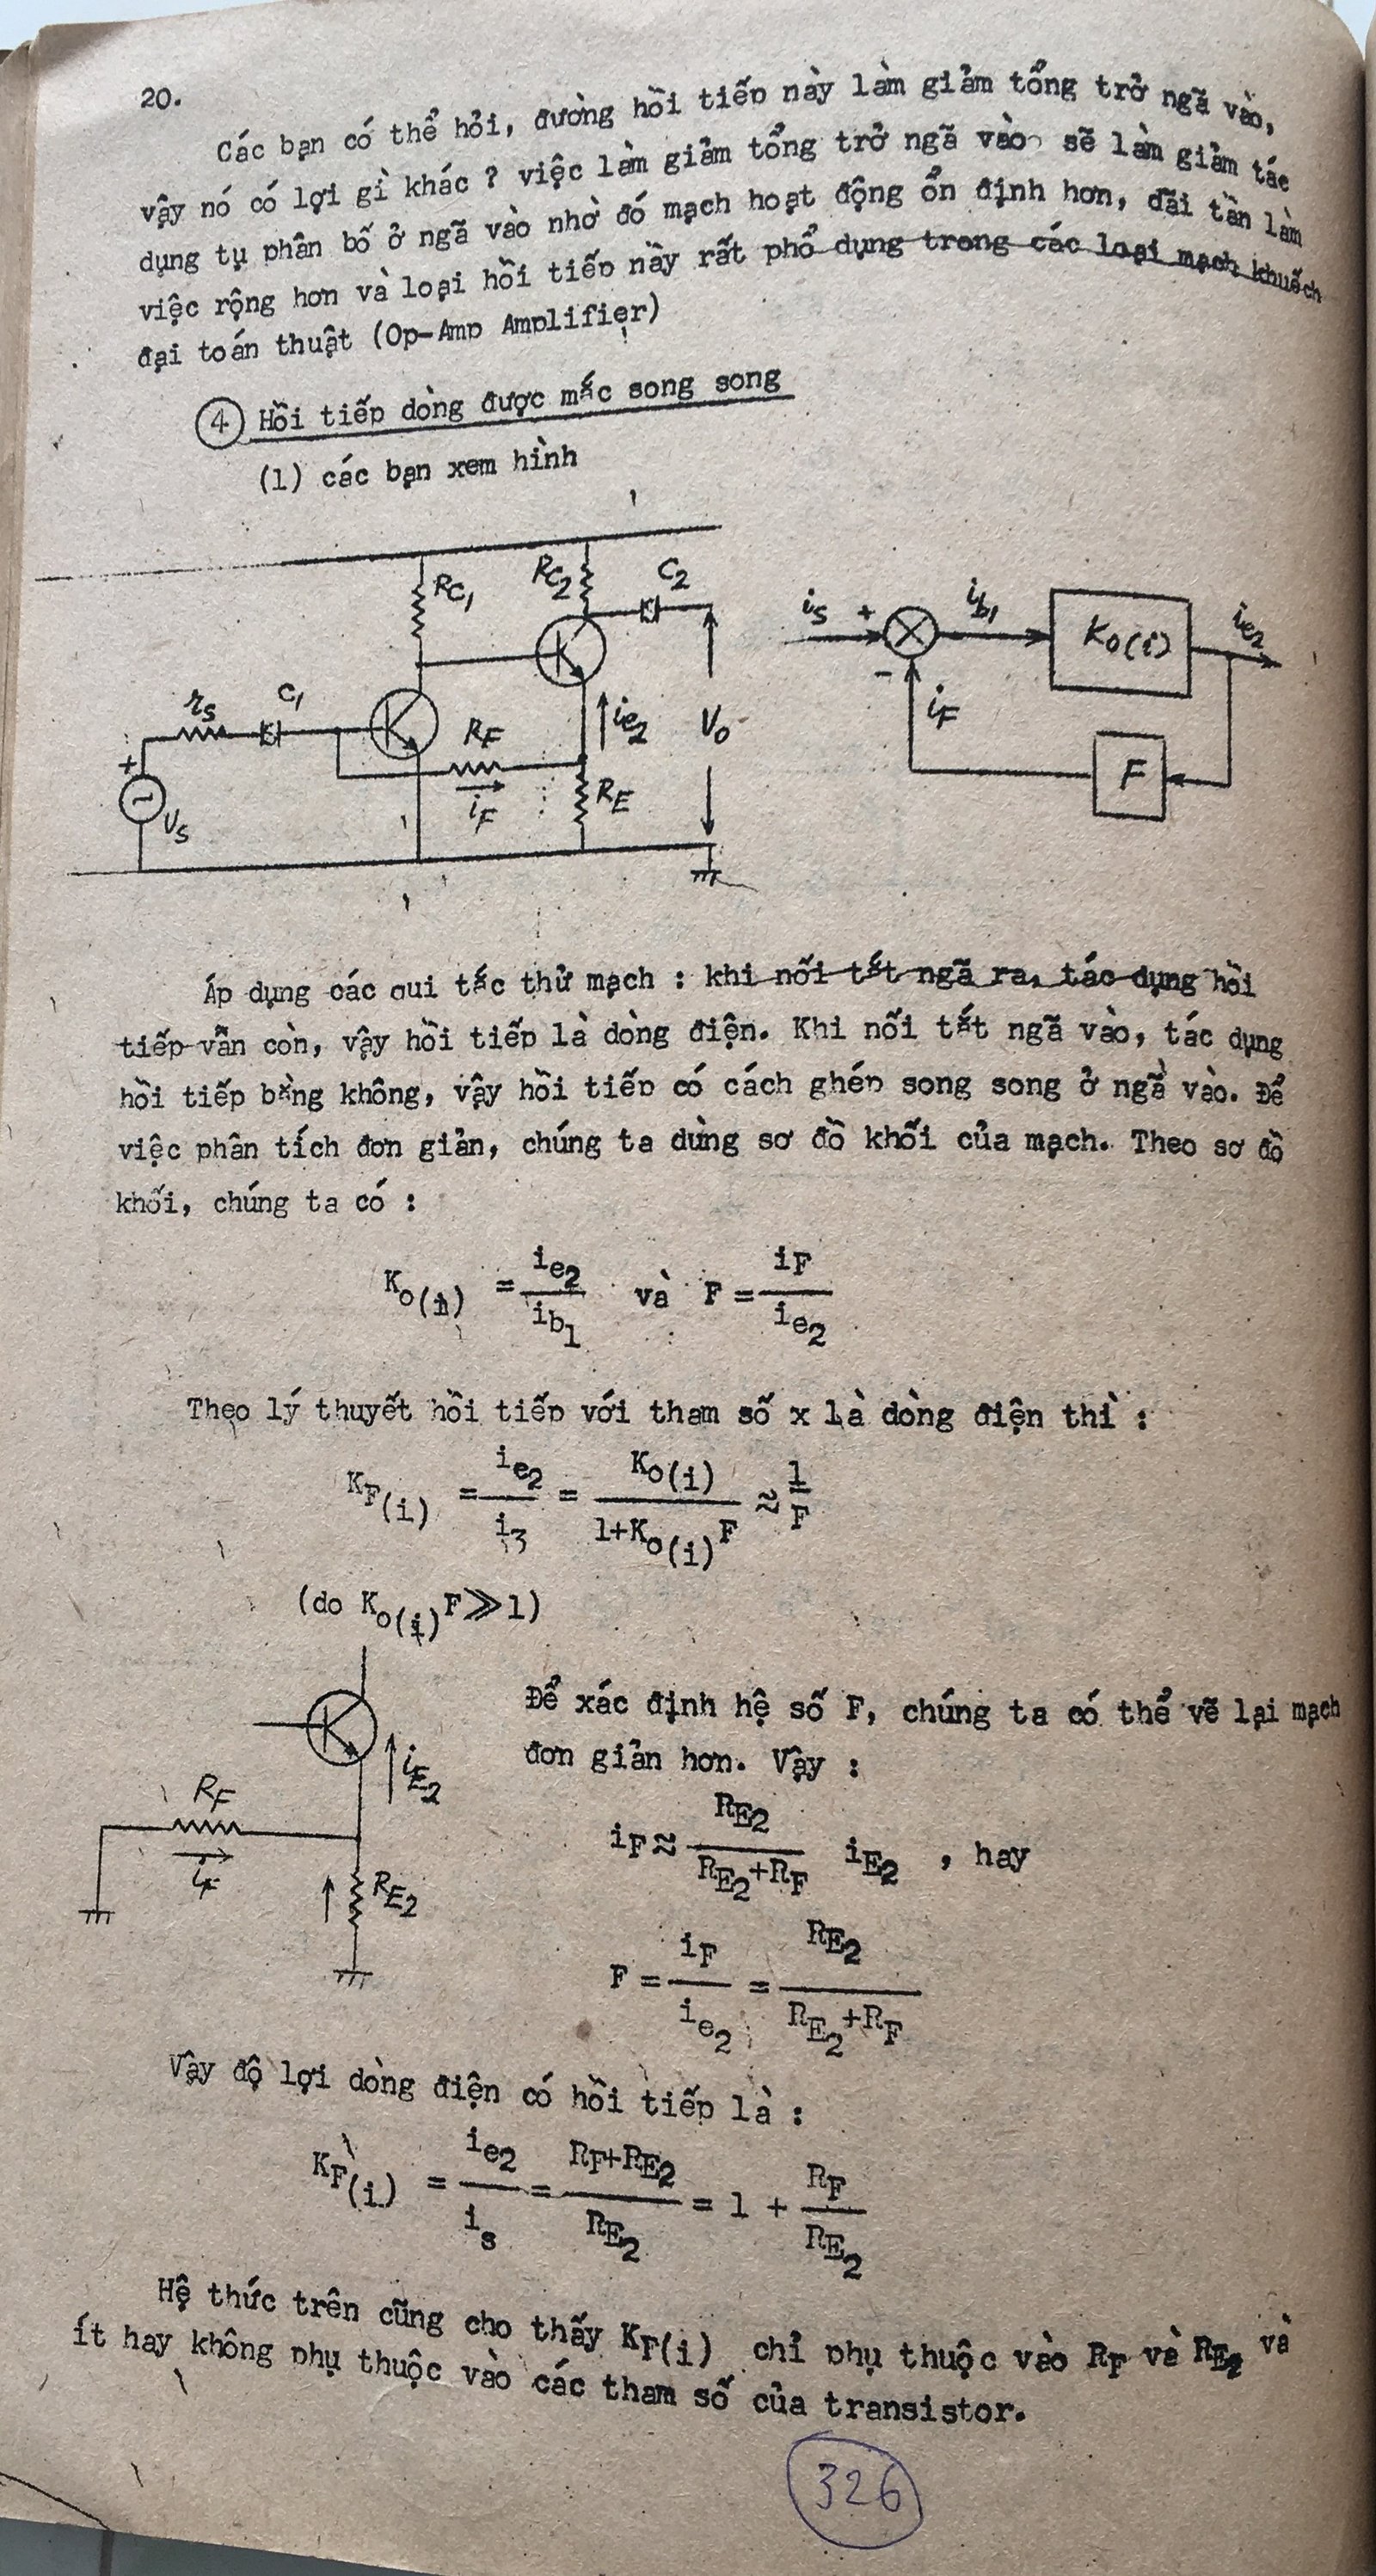 20.
Các bạn có thể hỏi, đường hồi tiếp này làm giảm tổng trở ngã vào,
vậy nó có lợi gì khác ? việc làm giảm tổng trở ngã vào sẽ làm giảm tác
dụng tụ phân bố ở ngã vào nhờ đó mạch hoạt động ổn định hơn, dãi tần làm
việc rộng hơn và loại hồi tiếp này rất phổ dụng trong các loại mạch khuếch
đại toán thuật (Op-Amp Amplifier)
4 Hồi tiếp dòng được mắc song song
(1) các bạn xem hình
RC1 RC2 C2
rs C1 RF ie2 Vo
+ Vs iF RE
is + ib1 Ko(i) ie2
- iF F
Áp dụng các qui tắc thử mạch : khi nối tắt ngã ra, tác dụng hồi
tiếp vẫn còn, vậy hồi tiếp là dòng điện. Khi nối tắt ngã vào, tác dụng
hồi tiếp bằng không, vậy hồi tiếp có cách ghép song song ở ngã vào. Để
việc phân tích đơn giản, chúng ta dùng sơ đồ khối của mạch. Theo sơ đồ
khối, chúng ta có :
Ko(i) = ie2 / ib1 và F = iF / ie2
Theo lý thuyết hồi tiếp với tham số x là dòng điện thì :
KF(i) = ie2 / i3 = Ko(i) / 1+Ko(i)F ≈ 1 / F
(do Ko(i)F≫1)
iE2
RF
iF RE2
Để xác định hệ số F, chúng ta có thể vẽ lại mạch
đơn giản hơn. Vậy :
iF ≈ RE2 / RE2+RF iE2 , hay
F = iF / ie2 = RE2 / RE2+RF
Vậy độ lợi dòng điện có hồi tiếp là :
KF(i) = ie2 / is = RF+RE2 / RE2 = 1 + RF / RE2
Hệ thức trên cũng cho thấy KF(i) chỉ phụ thuộc vào RF và RE2 và
ít hay không phụ thuộc vào các tham số của transistor.
326